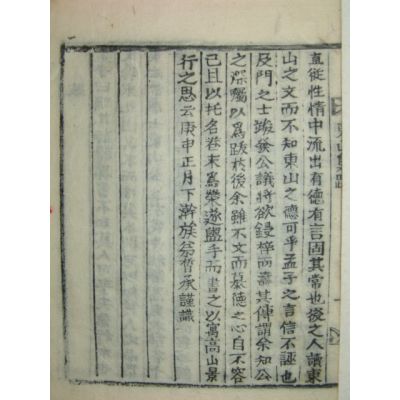 直從性情中流出有德有言固其常也後之人讀東
山之文而不知東山之德可乎孟子之言信不誣也
及門之士竣發公議將欲鋟梓而壽其傳謂余知公
之深囑以爲跋於後余雖不文而慕德之心自不容
已且以托名卷末爲榮遂盥手而書之以寓高山景
行之思云庚申正月下澣族
承謹識